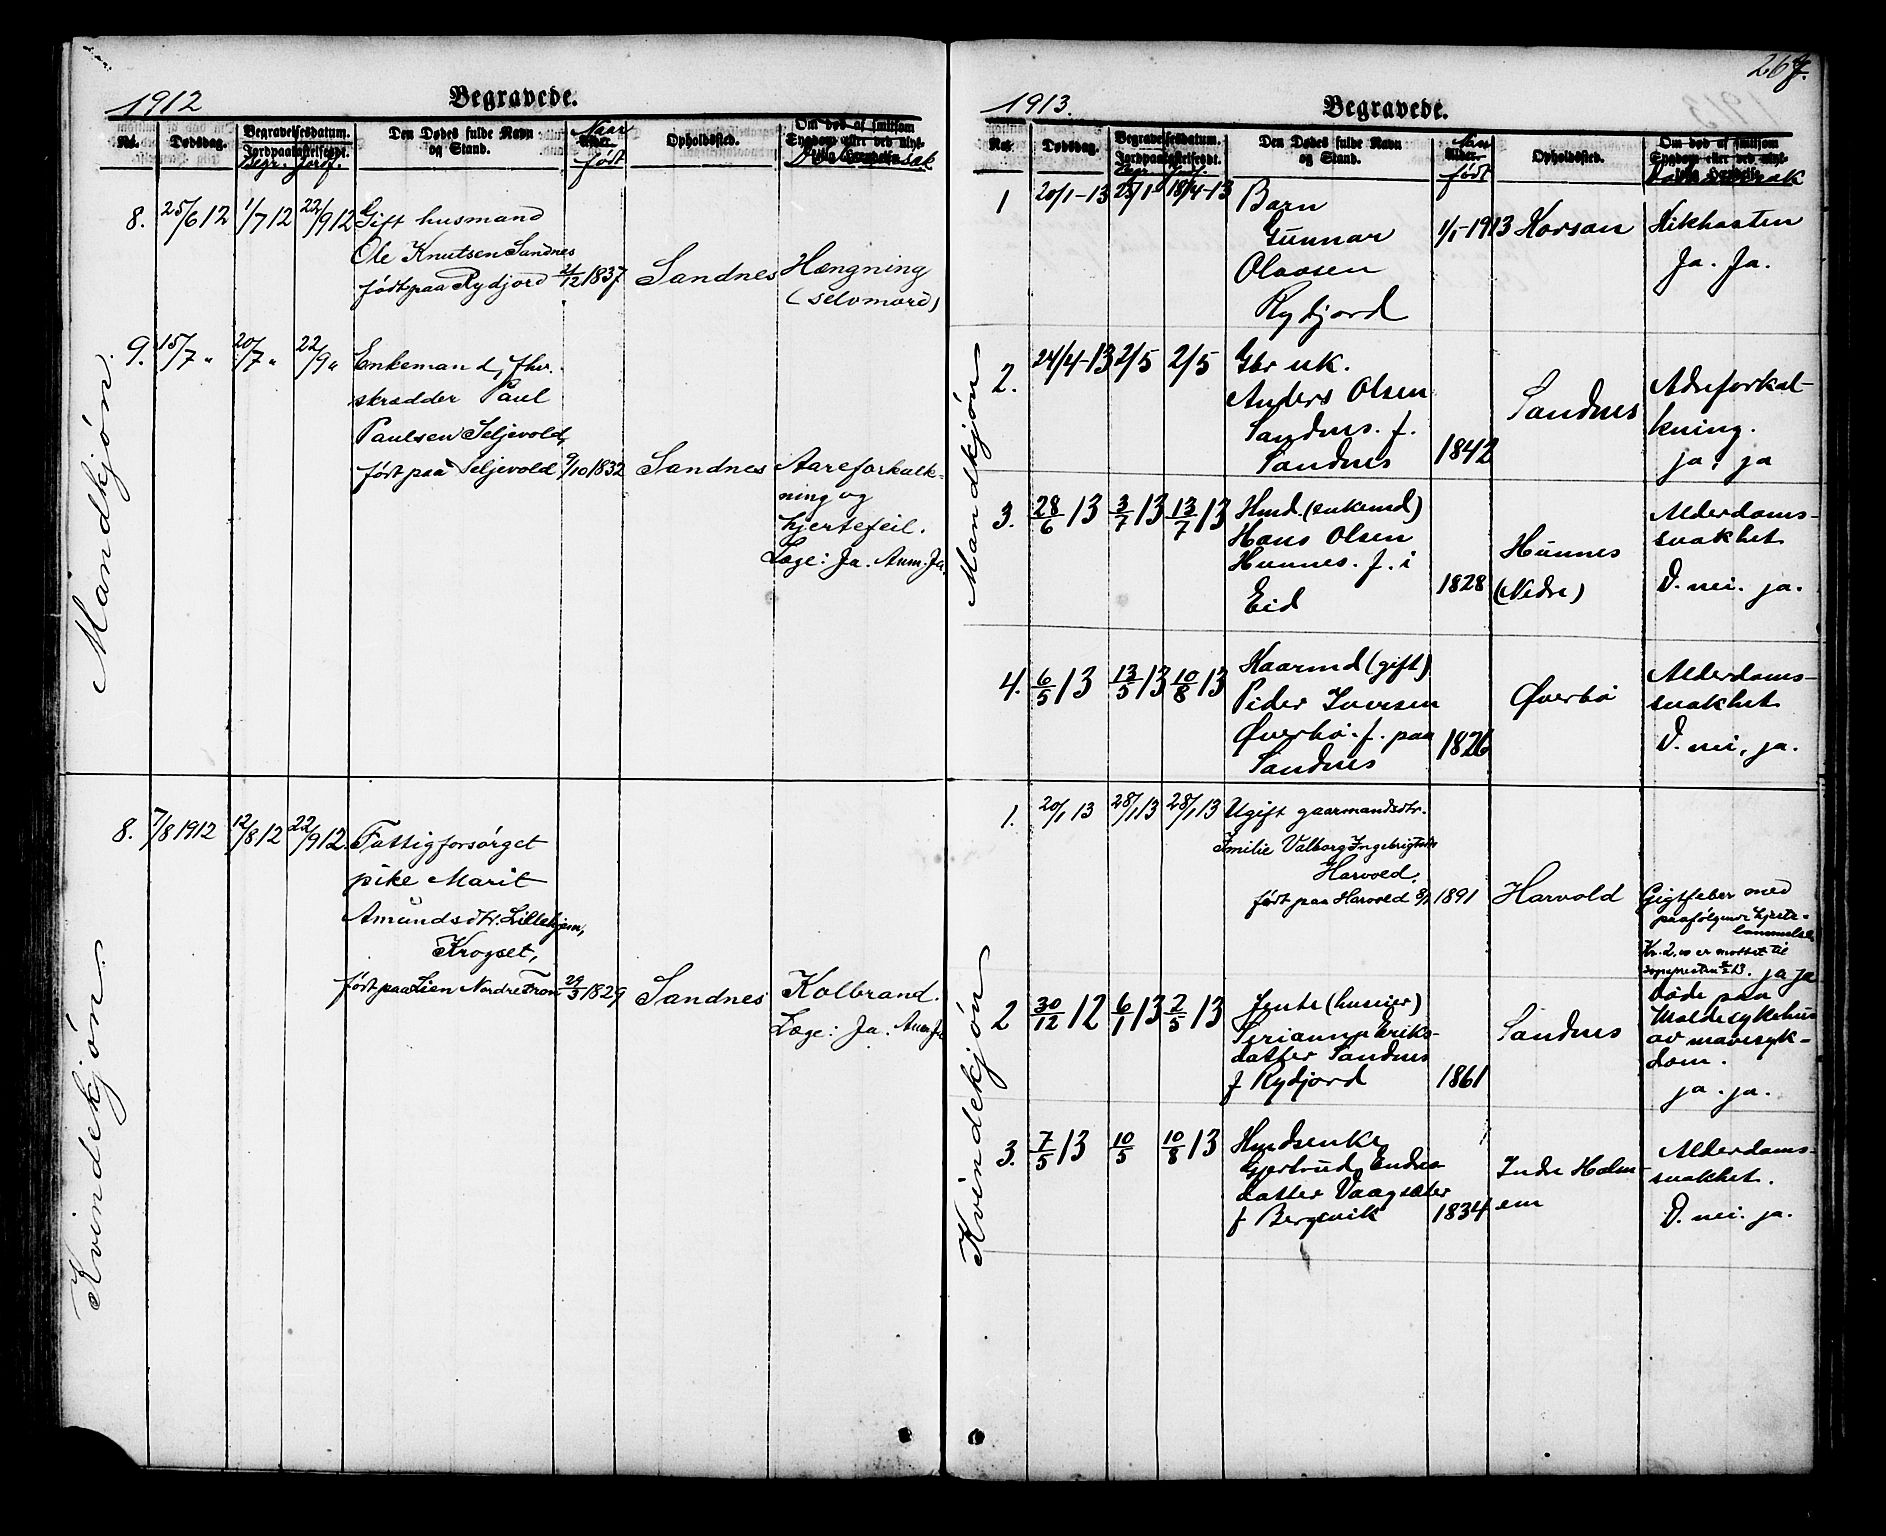 1912
Begravede.
No. Dødsdag. Begravelsesdatum. Jordpaakastelsesdt. Den Dødes fulde Navn og Stand. Alder. Opholdssted. Om død af smitsom Sygdom eller ved ulykkelig Hændelse.
Begr. Jordf. Naar født Dødsaarsak
Mandkjøn.
8. 25/6 12 1/7 12 22/9 12 Gift husmand
Ole Knutsen Sandnes
født paa Rydjord 21/12 1837 Sandnes Hængning
(selvmord)
9. 15/7 " 20/7 " 22/9 " Enkemand, fhv.
skrædder Paul
Paulsen Seljevold,
født paa Seljevold 9/10 1832 Sandnes Aareforkalk-
ning og
hjertefeil.
Læge: Ja. Anm. Ja.
Kvindekjøn.
8. 7/8 1912 12/8 12 22/9 12. Fattigforsørget
pike Marit
Amundsdtr. Lillehjem,
Krogset,
født paa Lien Nordre Fron 29/3 1829 Sandnes Kolbrand.
Læge: Ja. Anm. Ja
267.
1913.
Begravede.
No. Dødsdag. Begravelsesdatum. Jordpaakastelsesdt. Den Dødes fulde Navn og Stand. Alder. Opholdssted. Om død af smitsom Sygdom eller ved ulykkelig Hændelse.
Begr. Jordf. Naar født Dødsaarsak
Mandkjøn
1 20/1-13 25/1 18/4-13 Barn
Gunnar 1/1-1913 Horsan Kikhosten
Olaosen Ja. Ja.
Rydjord
2. 24/4-13 2/5 2/5 Gbr uk.
Anders Olsen Sandnes Adreforkal-
Sandnes. f. kning.
Sandnes 1842 ja. ja
3. 28/6 13 3/7 13 13/7 13 Hmd. (enkemd) Alderdoms-
Hans Olsen svakhet
Hunnes. f. i 1828 Hunnes (Nedre) D. nei. ja.
Eid
4. 6/5 13 13/5 13 10/8 13 Kaarmd (gift) Alderdoms-
Peder Iversen Øverbø svakhet
Øverbø. f. paa 1826 D. nei, ja.
Sandnes
Kvindekjøn
1. 20/1 13 28/1 13 28/1 13 Ugift gaarmandsdtr.
Emilie Valborg Ingebrigtsdtr
Harvold.
født paa Harvold 8/1 1891 Harvold Gigtfeber med
paafølgende hjerte-
lammelse
Kr. 2,00 er mottat til
sognepresten 3/2 13. ja ja
2 30/12 12 6/1 13 2/5 13 Jente (huseier) Døde paa
Serianna Eriks- Sandnes Molde sykehus
datter Sandnes av mavesyk-
f Rydjord 1861 dom.
ja. ja.
3. 7/5 13 10/5 10/8 13 Hmdsenke Alderdoms-
Gjertrud Endre- Indre Holm- svakhet.
datter Vaagsæter em
f Bergsvik 1834 D. nei. ja.